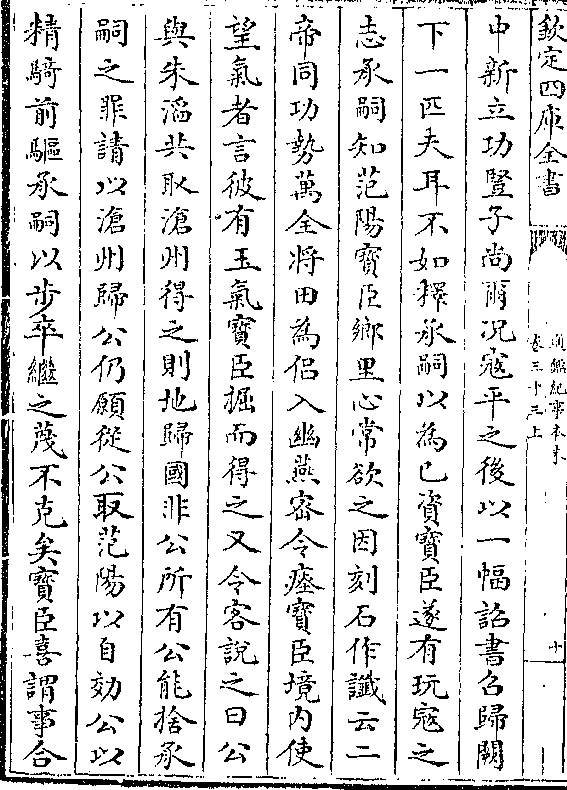 欽定四庫全書
通鑑紀事本末
卷三十三上
十
中新立功豎子尚爾况寇平之後以一幅詔書召歸闕
下一匹夫耳不如釋承嗣以為己資寶臣遂有玩寇之
志承嗣知范陽寶臣鄉里心常欲之因刻石作讖云二
帝同功勢萬全將田為侣入幽燕密令瘞寶臣境内使
望氣者言彼有玉氣寶臣掘而得之又令客說之曰公
與朱滔共取滄州得之則地歸國非公所有公能捨承
嗣之罪請以滄州歸公仍願從公取范陽以自効公以
精騎前驅承嗣以步卒繼之蔑不克矣寶臣喜謂事合